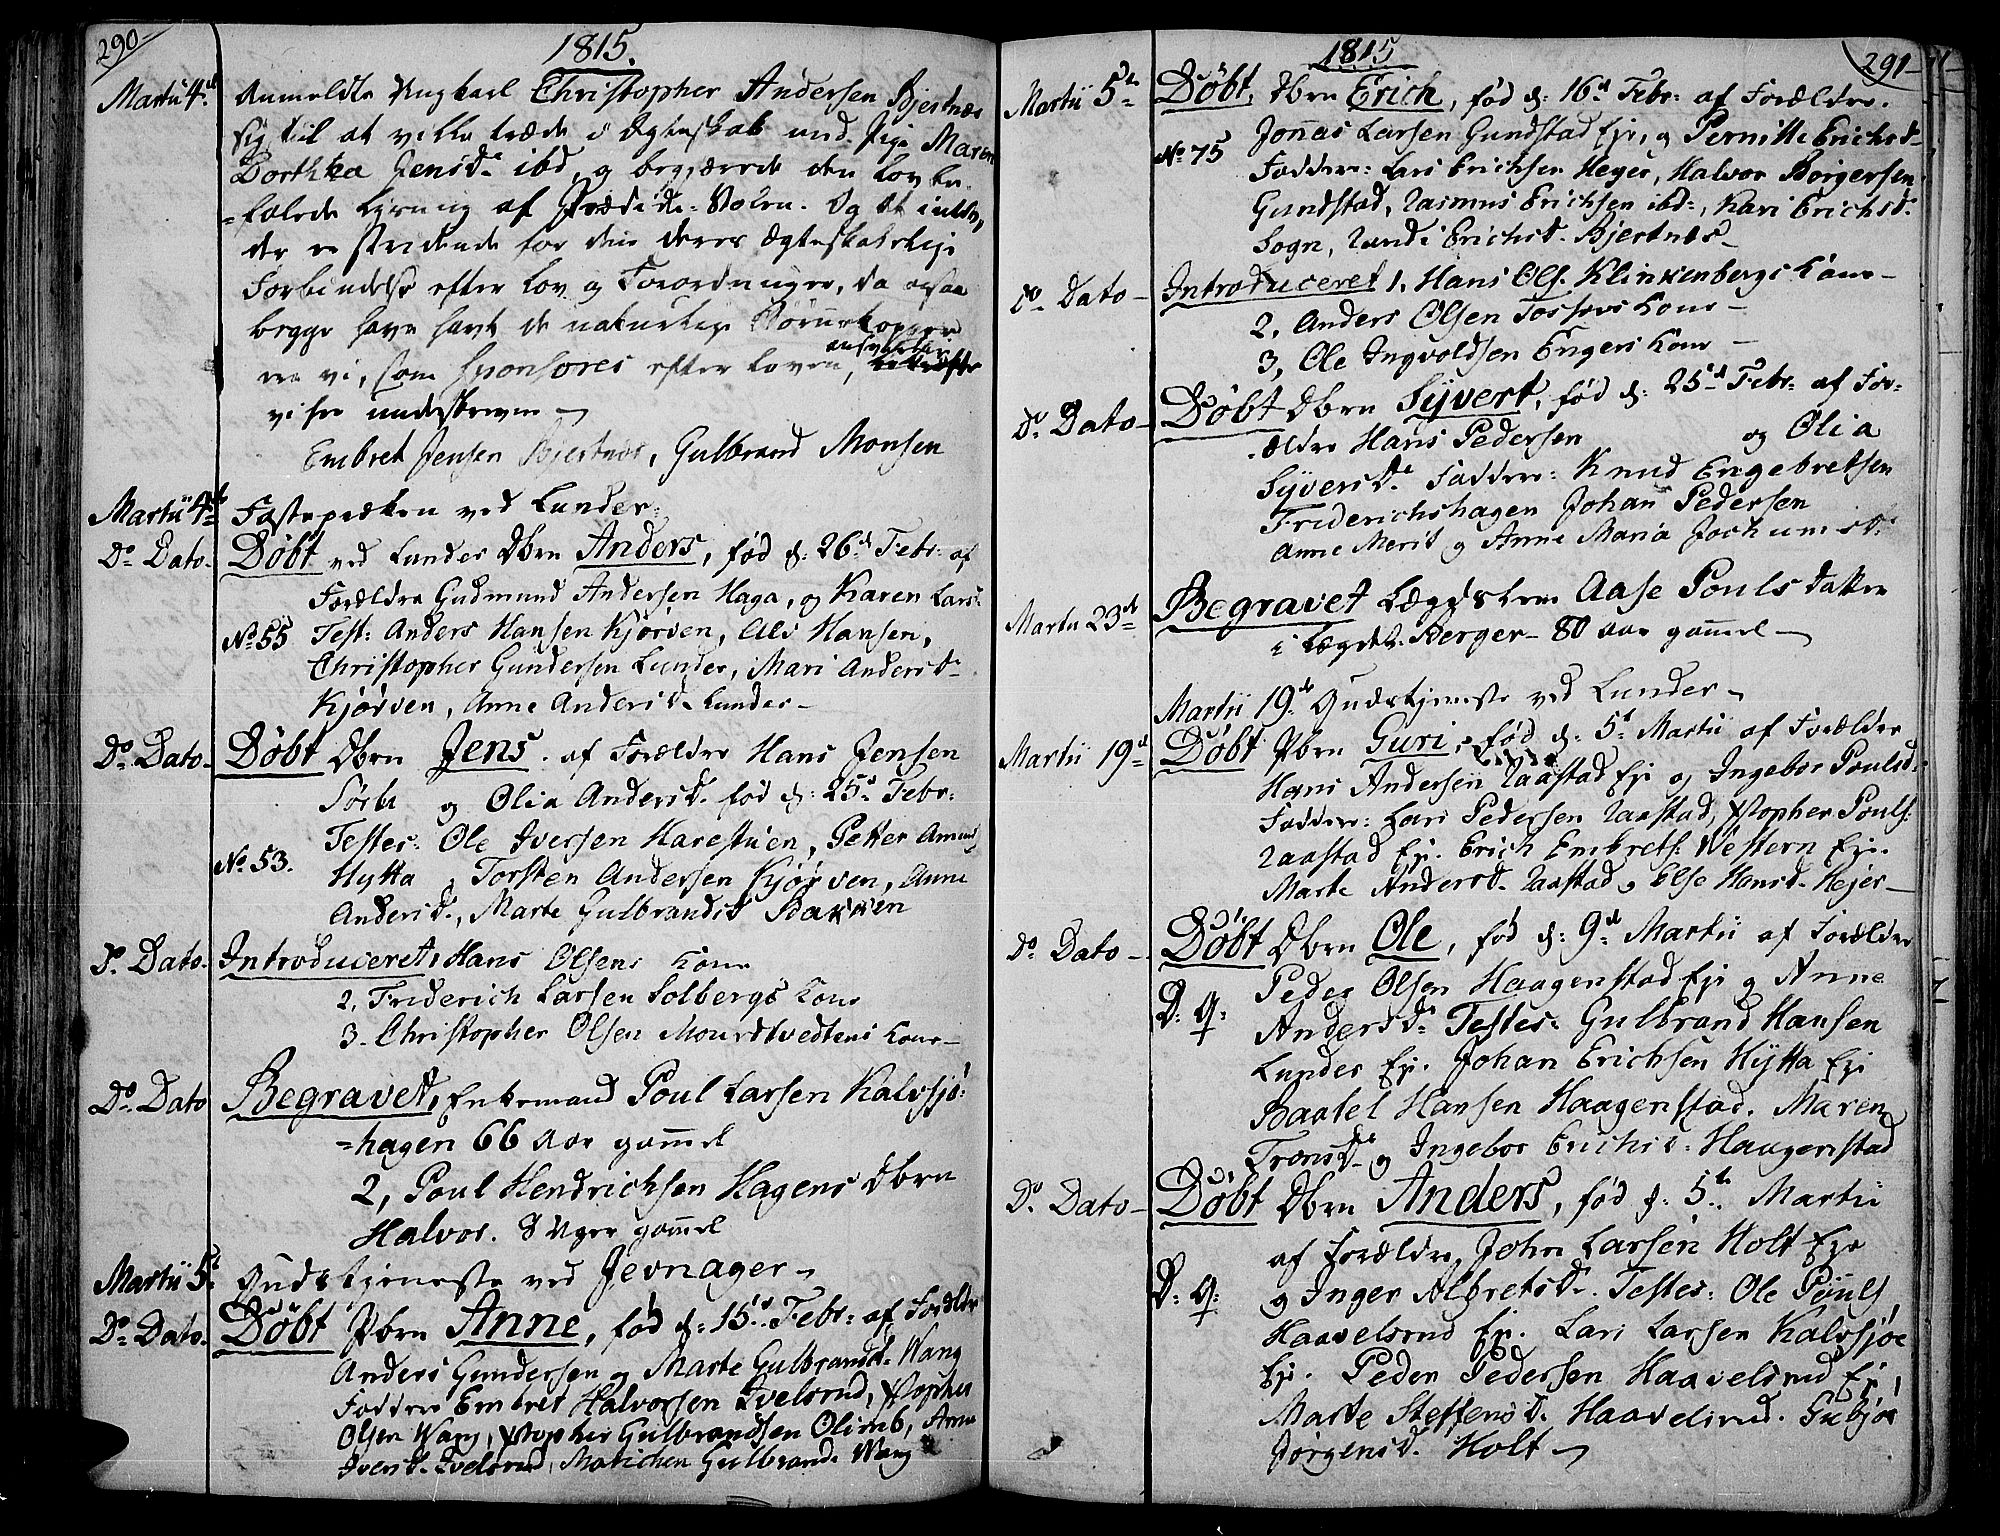 290
1815.
Martii 4de Anmeldte Ungkarl Christopher Andersen Bjertnæs
sig til at ville træde i Egteskab med Pige Maren
Dorthea Jensd. ibd, og begjærede den lovbe-
=falede Lysning af Prædike-Stolen. Og at intet
der er stridende for den deres Ægteskabelige
Forbindelse efter Lov og Forordninger, da ogsaa
begge have havt de naturlige Børnekopper
ere vi, som Sponsores efter Loven, ansvarlig
vi her underskrevne
Embret Jensen Bjertnæs, Gulbrand Monsen
Martii 4de Fastepræken ved Lunder.
Do Dato. Døbt ved Lunder Dbrn Anders, fød d: 26de Febr: af
Forældre Gudmund Andersen Haga, og Karen Larsd.
No 55 Test: Anders Hansen Kjørven, Alv Hansen,
Christopher Gundersen Lunder, Mari Andersd.
Kjørven, Anne Andersd. Lunder
Do Dato. Døbt Dbrn Jens. af Forældre Hans Jensen
Sørli og Olia Andersd. fød d: 25de Febr:
Testes: Ole Iversen Harestuen, Petter Amunds
No 53. Hytta, Torsten Andersen Kjørven, Anne
Andersd., Marte Gulbrandsd Bakken
Do Dato. Introduceret, Hans Olsens Kone
2, Friderich Larsen Solbergs Kone
3. Christopher Olsen Mourdtvedtens Kone
Do Dato Begravet, Enkemand Poul Larsen Kalvsjø-
=hagen 66 Aar gammel
2, Poul Hendrichsen Hagens Dbrn
Halvor. 8 Uger gammel
Martii 5te Gudstjeneste ved Jevnager
Do Dato. Døbt Pbrn Anne, fød d: 15de Febr: af Forældre
Anders Gundersen og Marte Gulbrandsd. Wang
Faddere Embret Halvorsen Ivelsrud, Xstopher
Olsen Wang, Xstopher Gulbrandsen Olimb, Anne
Iversd. Ivelsrud, Matichen Gulbrandsd. Wang
1815
291
Martii 5te Døbt, Dbrn Erich, fød d: 16de Febr: af Forældre
Jonnas Larsen Gundstad Eje, og Pernille Erichsd.
No 75 Faddere: Lars Erichsen Heyer, Halvor Børgersen
Gundstad, Rasmus Erichsen ibd:, Kari Erichsd.
Sogn, Randi Erichsd. Bjertnes
Do Dato Introduceret 1. Hans Ols. Klinkenbergs Kone
2, Anders Olsen Kone
3, Ole Ingvoldsen Engers Kone
Do Dato Døbt Dbrn Syvert, fød d: 25de Febr: af For-
ældre Hans Pedersen og Olia
Syversd. Faddere: Knud Engebretsen
Friderichshagen Johan Pedersen
Anne Meris og Anne Maria Jochumsd:
Martii 23de Begravet Lægdslem Aase Pouls datter
i Lægdet. Berger 80 Aar gammel
Martii 19de Gudstjeneste ved Lunder
Martii 19de Døbt Pbrn Guri, fød d: 5te Martii af Forældre
Hans Andersen Raastad Eje og Ingebor Poulsd.
Faddere: Lars Pedersen Raastad, Xstopher Pouls:
Raastad Eje. Erich Embrets. Western Eje.
Marte Andersd. Raastad, Else Hansd. Hejer
Do Dato Døbt Dbrn Ole, fød d: 9de Martii af Forældre
Peder Olsen Haagenstad Eje og Anne
D: 9: Andersd. Testes: Gulbrand Hansen
Lunder Eje. Johan Erichsen Hytta Eje
Baatel Hansen Haagenstad. Maren
Tronsd. og Ingebor Erichsd: Haagenstad
Do Dato Døbt Dbrn Anders, fød d: 5te Martii
af Forældre John Larsen Holt Eje
D: 9: og Inger Albretsd. Testes: Ole Pouls
Haavelsrud Eje. Lars Larsen Kalvsjøe
Eje. Peder Pedersen Haavelsrud Eje,
Marte Steffensd. Haavelsrud. Gubjør
Jørgensd. Holt